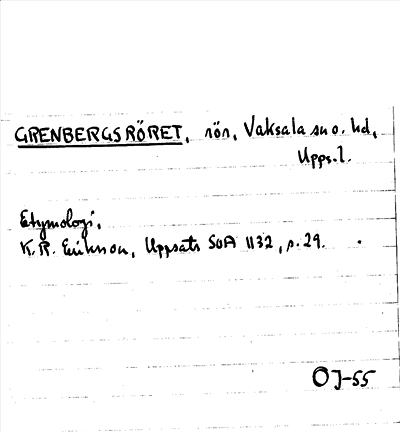 GRENBERGSRÖRET, rör, Vaksala sn o. hd,
Upps.l.
Etymologi.
K. R. Erikson, Uppsats SOA 1132, s. 29.
OJ-55